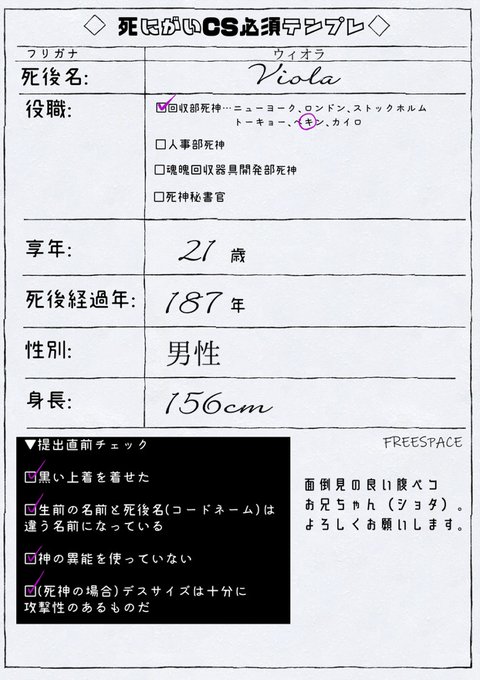 ◇ 死にがいCS必須テンプレ◇
フリガナ ウィオラ
死後名: Viola
役職: ☑回収部死神…ニューヨーク、ロンドン、ストックホルム
トーキョー、ペキン、カイロ
□人事部死神
□魂魄回収器具開発部死神
□死神秘書官
享年: 21 歳
死後経過年: 187 年
性別: 男性
身長: 156cm
▼提出直前チェック
☑黒い上着を着せた
☑生前の名前と死後名(コードネーム)は
違う名前になっている
☑神の異能を使っていない
☑(死神の場合)デスサイズは十分に
攻撃性のあるものだ
FREESPACE
面倒見の良い腹ペコ
お兄ちゃん（ショタ）。
よろしくお願いします。